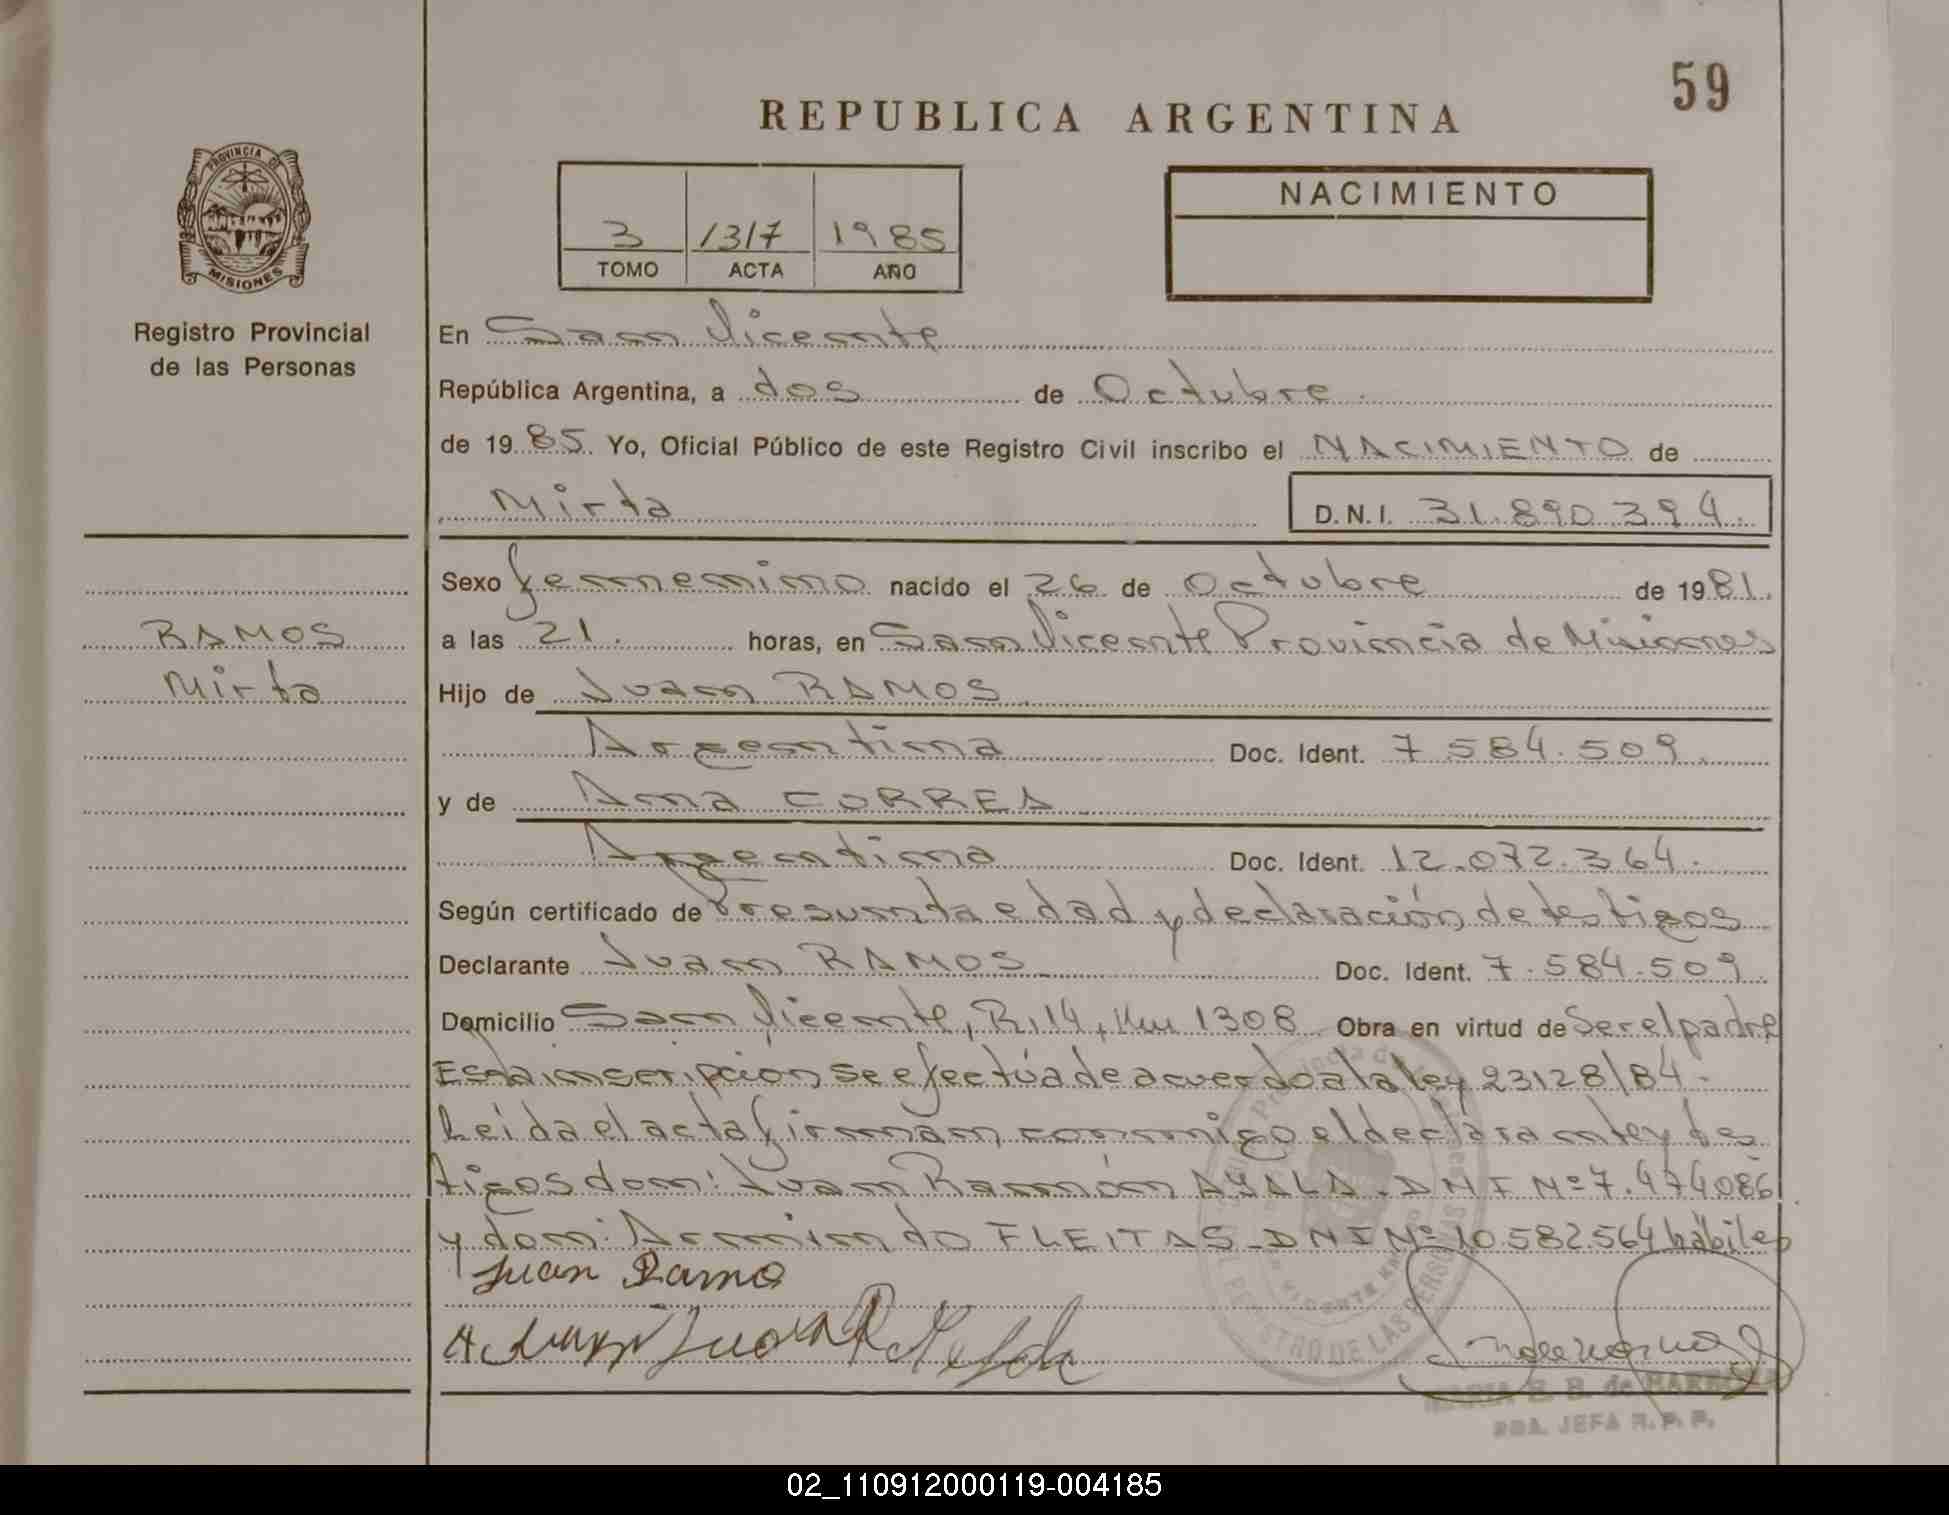 59
REPUBLICA ARGENTINA
PROVINCIA DE
MISIONES
Registro Provincial
de las Personas
3 1317 1985
TOMO ACTA AÑO
NACIMIENTO
En San Vicente
República Argentina, a dos de Octubre
de 1985. Yo, Oficial Público de este Registro Civil inscribo el NACIMIENTO de
Mirta D.N.I. 31.890.394.
Sexo femenino nacido el 26 de Octubre de 1981.
RAMOS
Mirta
a las 21. horas, en San Vicente Provincia de Misiones
Hijo de Juan RAMOS
Argentina Doc. Ident. 7.584.509.
y de Ana CORREA
Argentina Doc. Ident. 12.072.364.
Según certificado de Presunta edad y declaración de testigos
Declarante Juan RAMOS Doc. Ident. 7.584.509.
Domicilio San Vicente, R.14, Km 1308 Obra en virtud de Ser el padre
Esta inscripción se efectúa de acuerdo a la ley 23128/84.
Leída el acta firman conmigo el declarante y tes
tigos don: Juan Ramón AYALA. DNI Nº 7.474086
y don: Armindo FLEITAS - DNI Nº 10.582.564 hábiles
Juan Ramo
REGISTRO DE LAS PERSONAS
MARIA E. B. de
JEFA R. P. P.
02_110912000119-004185